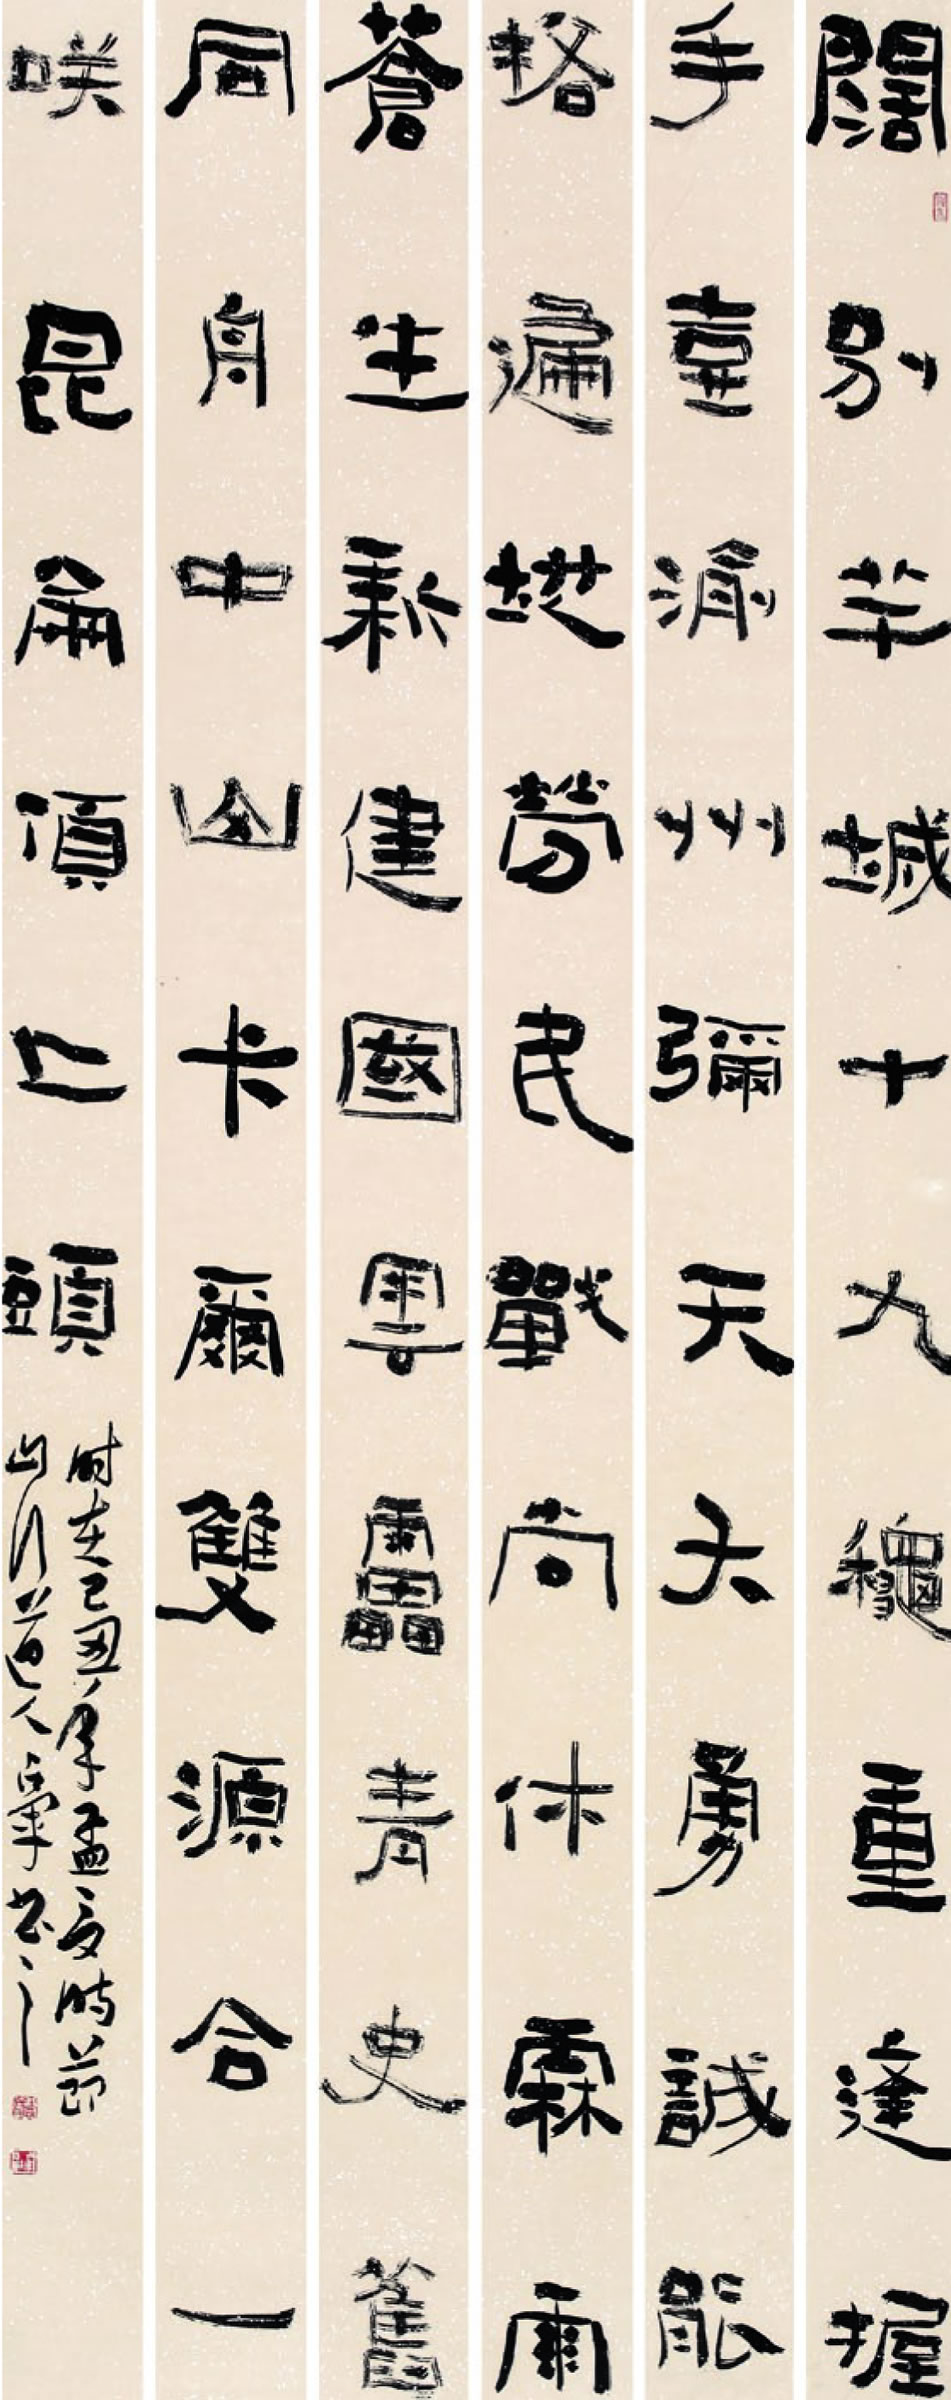 闊别羊城十九龝重逢握
手喜渝州彌天大勇誠能
挌遍地勞民戰尚休霖雨
蒼生新建國雲靁青史舊
同舟中山卡爾雙源合一
咲昆侖頂上頭
时在己丑年孟夏時節
山行道人書之